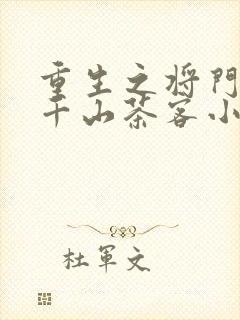 重生之将門
千山茶客小
杜軍文